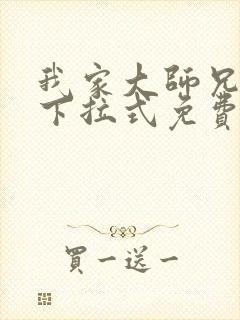 我家大師兄
下拉式免費
買一送一